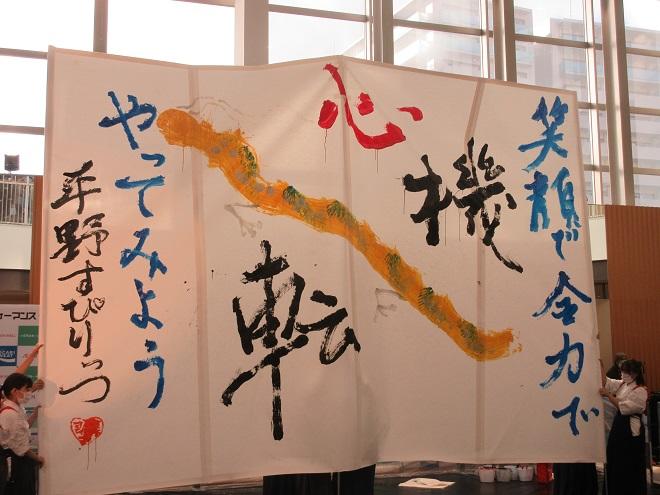 笑顔で全力で
心
機
転
やってみよう
平野すぴりっつ
ォーマンス